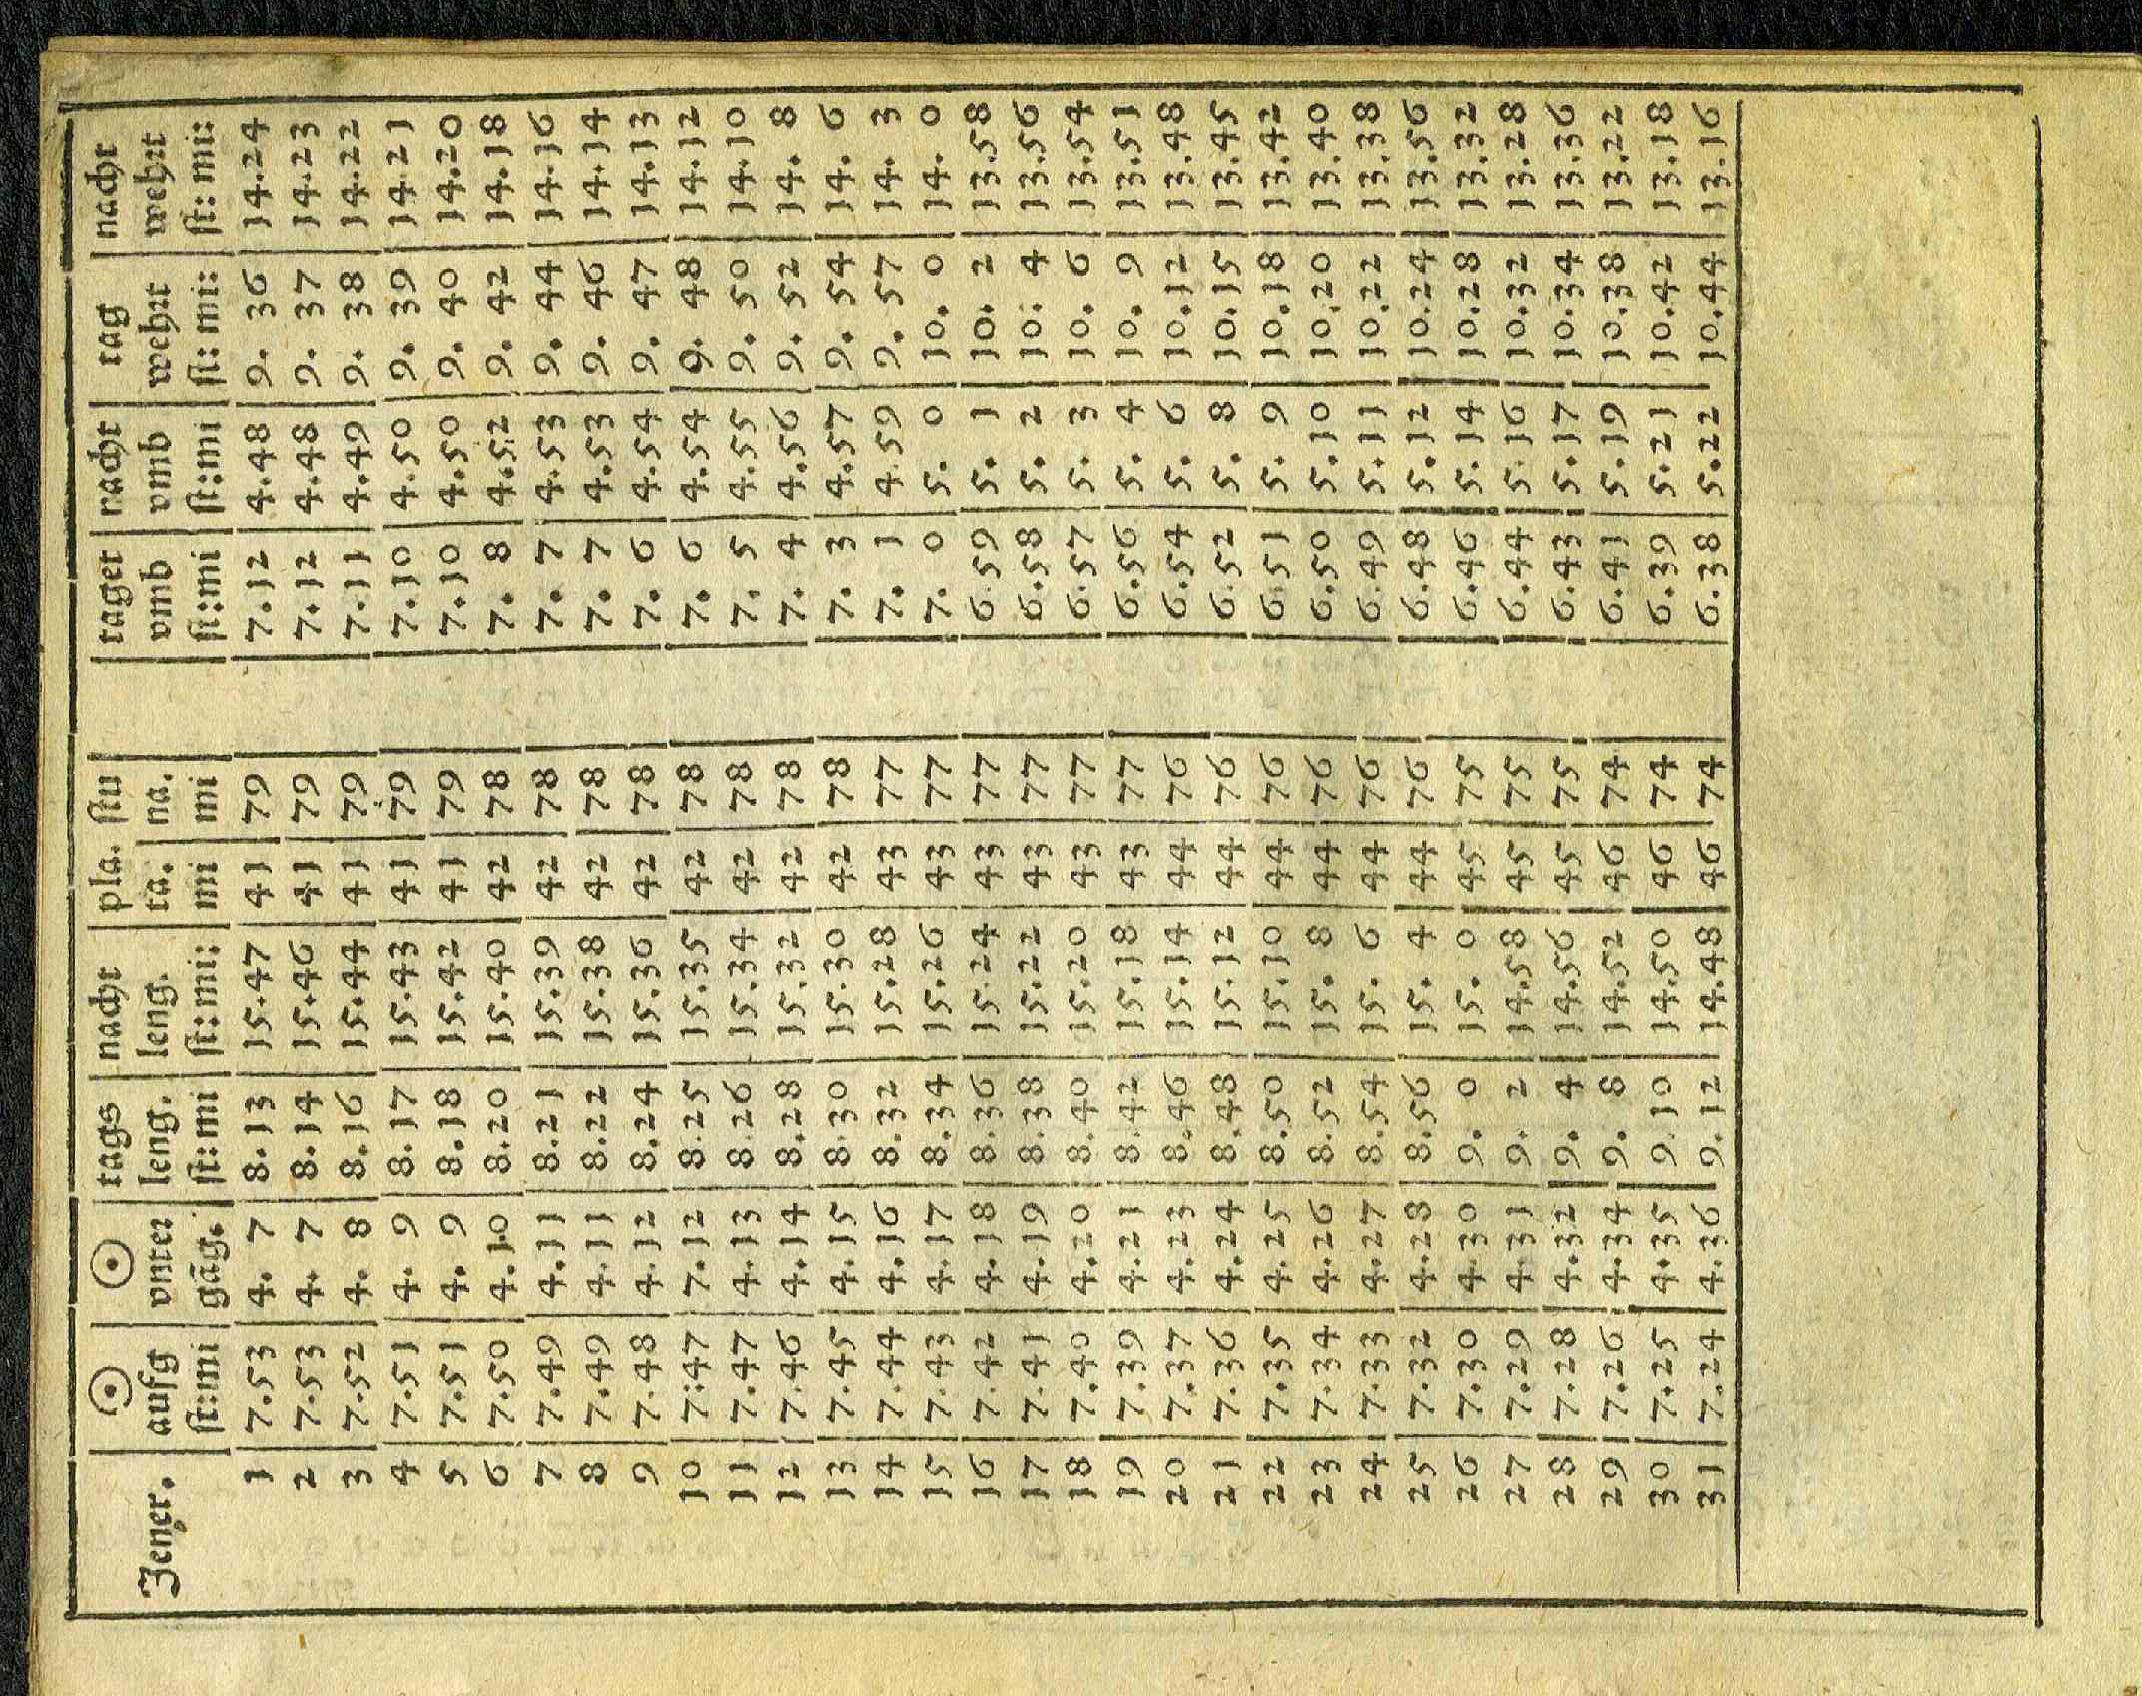 Jener. ☉ ☉ tags nacht pla. stu tager nacht tag nacht
aufg vnter leng. leng. ta. na. vmb vmb wehrt wehrt
st:mi gāg. st:mi st:mi: mi mi st:mi st:mi st: mi: st: mi:
1 7.53 4. 7 8.13 15.47 41 79 7.12 4.48 9. 36 14.24
2 7.53 4. 7 8.14 15.46 41 79 7.12 4.48 9. 37 14.23
3 7.52 4. 8 8.16 15.44 41 79 7.11 4.49 9. 38 14.22
4 7.51 4. 9 8.17 15.43 41 79 7.10 4.50 9. 39 14.21
5 7.51 4. 9 8.18 15.42 41 79 7.10 4.50 9. 40 14.20
6 7.50 4.10 8.20 15.40 42 78 7. 8 4.52 9. 42 14.18
7 7.49 4.11 8.21 15.39 42 78 7. 7 4.53 9. 44 14.16
8 7.49 4.11 8.22 15.38 42 78 7. 7 4.53 9. 46 14.14
9 7.48 4.12 8.24 15.36 42 78 7. 6 4.54 9. 47 14.13
10 7:47 7.12 8.25 15.35 42 78 7. 6 4.54 9. 48 14.12
11 7.47 4.13 8.26 15.34 42 78 7. 5 4.55 9. 50 14.10
12 7.46 4.14 8.28 15.32 42 78 7. 4 4.56 9. 52 14. 8
13 7.45 4.15 8.30 15.30 42 78 7. 3 4.57 9. 54 14. 6
14 7.44 4.16 8.32 15.28 43 77 7. 1 4.59 9. 57 14. 3
15 7.43 4.17 8.34 15.26 43 77 7. 0 5. 0 10. 0 14. 0
16 7.42 4.18 8.36 15.24 43 77 6.59 5. 1 10. 2 13.58
17 7.41 4.19 8.38 15.22 43 77 6.58 5. 2 10. 4 13.56
18 7.40 4.20 8.40 15.20 43 77 6.57 5. 3 10. 6 13.54
19 7.39 4.21 8.42 15.18 43 77 6.56 5. 4 10. 9 13.51
20 7.37 4.23 8.46 15.14 44 76 6.54 5. 6 10.12 13.48
21 7.36 4.24 8.48 15.12 44 76 6.52 5. 8 10.15 13.45
22 7.35 4.25 8.50 15.10 44 76 6.51 5. 9 10.18 13.42
23 7.34 4.26 8.52 15. 8 44 76 6.50 5.10 10.20 13.40
24 7.33 4.27 8.54 15. 6 44 76 6.49 5.11 10.22 13.38
25 7.32 4.28 8.56 15. 4 44 76 6.48 5.12 10.24 13.56
26 7.30 4.30 9. 0 15. 0 45 75 6.46 5.14 10.28 13.32
27 7.29 4.31 9. 2 14.58 45 75 6.44 5.16 10.32 13.28
28 7.28 4.32 9. 4 14.56 45 75 6.43 5.17 10.34 13.36
29 7.26 4.34 9. 8 14.52 46 74 6.41 5.19 10.38 13.22
30 7.25 4.35 9.10 14.50 46 74 6.39 5.21 10.42 13.18
31 7.24 4.36 9.12 14.48 46 74 6.38 5.22 10.44 13.16